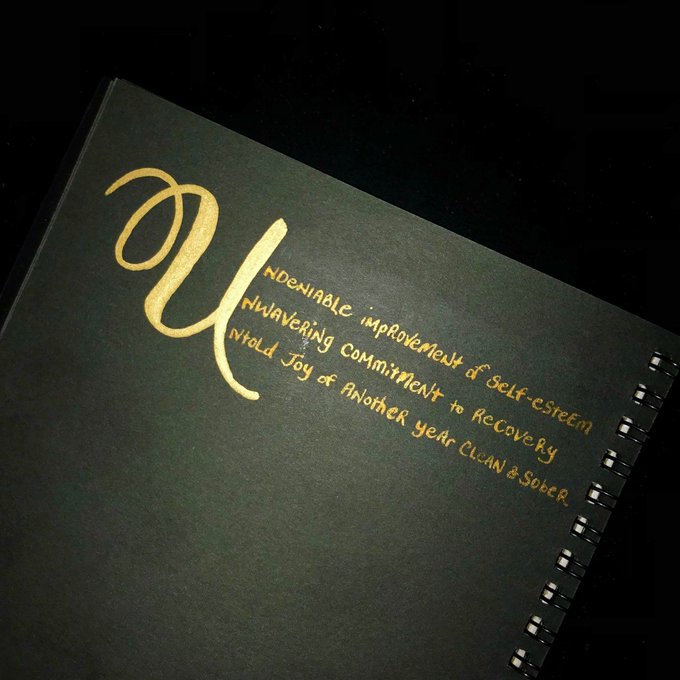 Undeniable improvement of self-esteem
Unwavering commitment to recovery
Untold Joy of Another year Clean & Sober